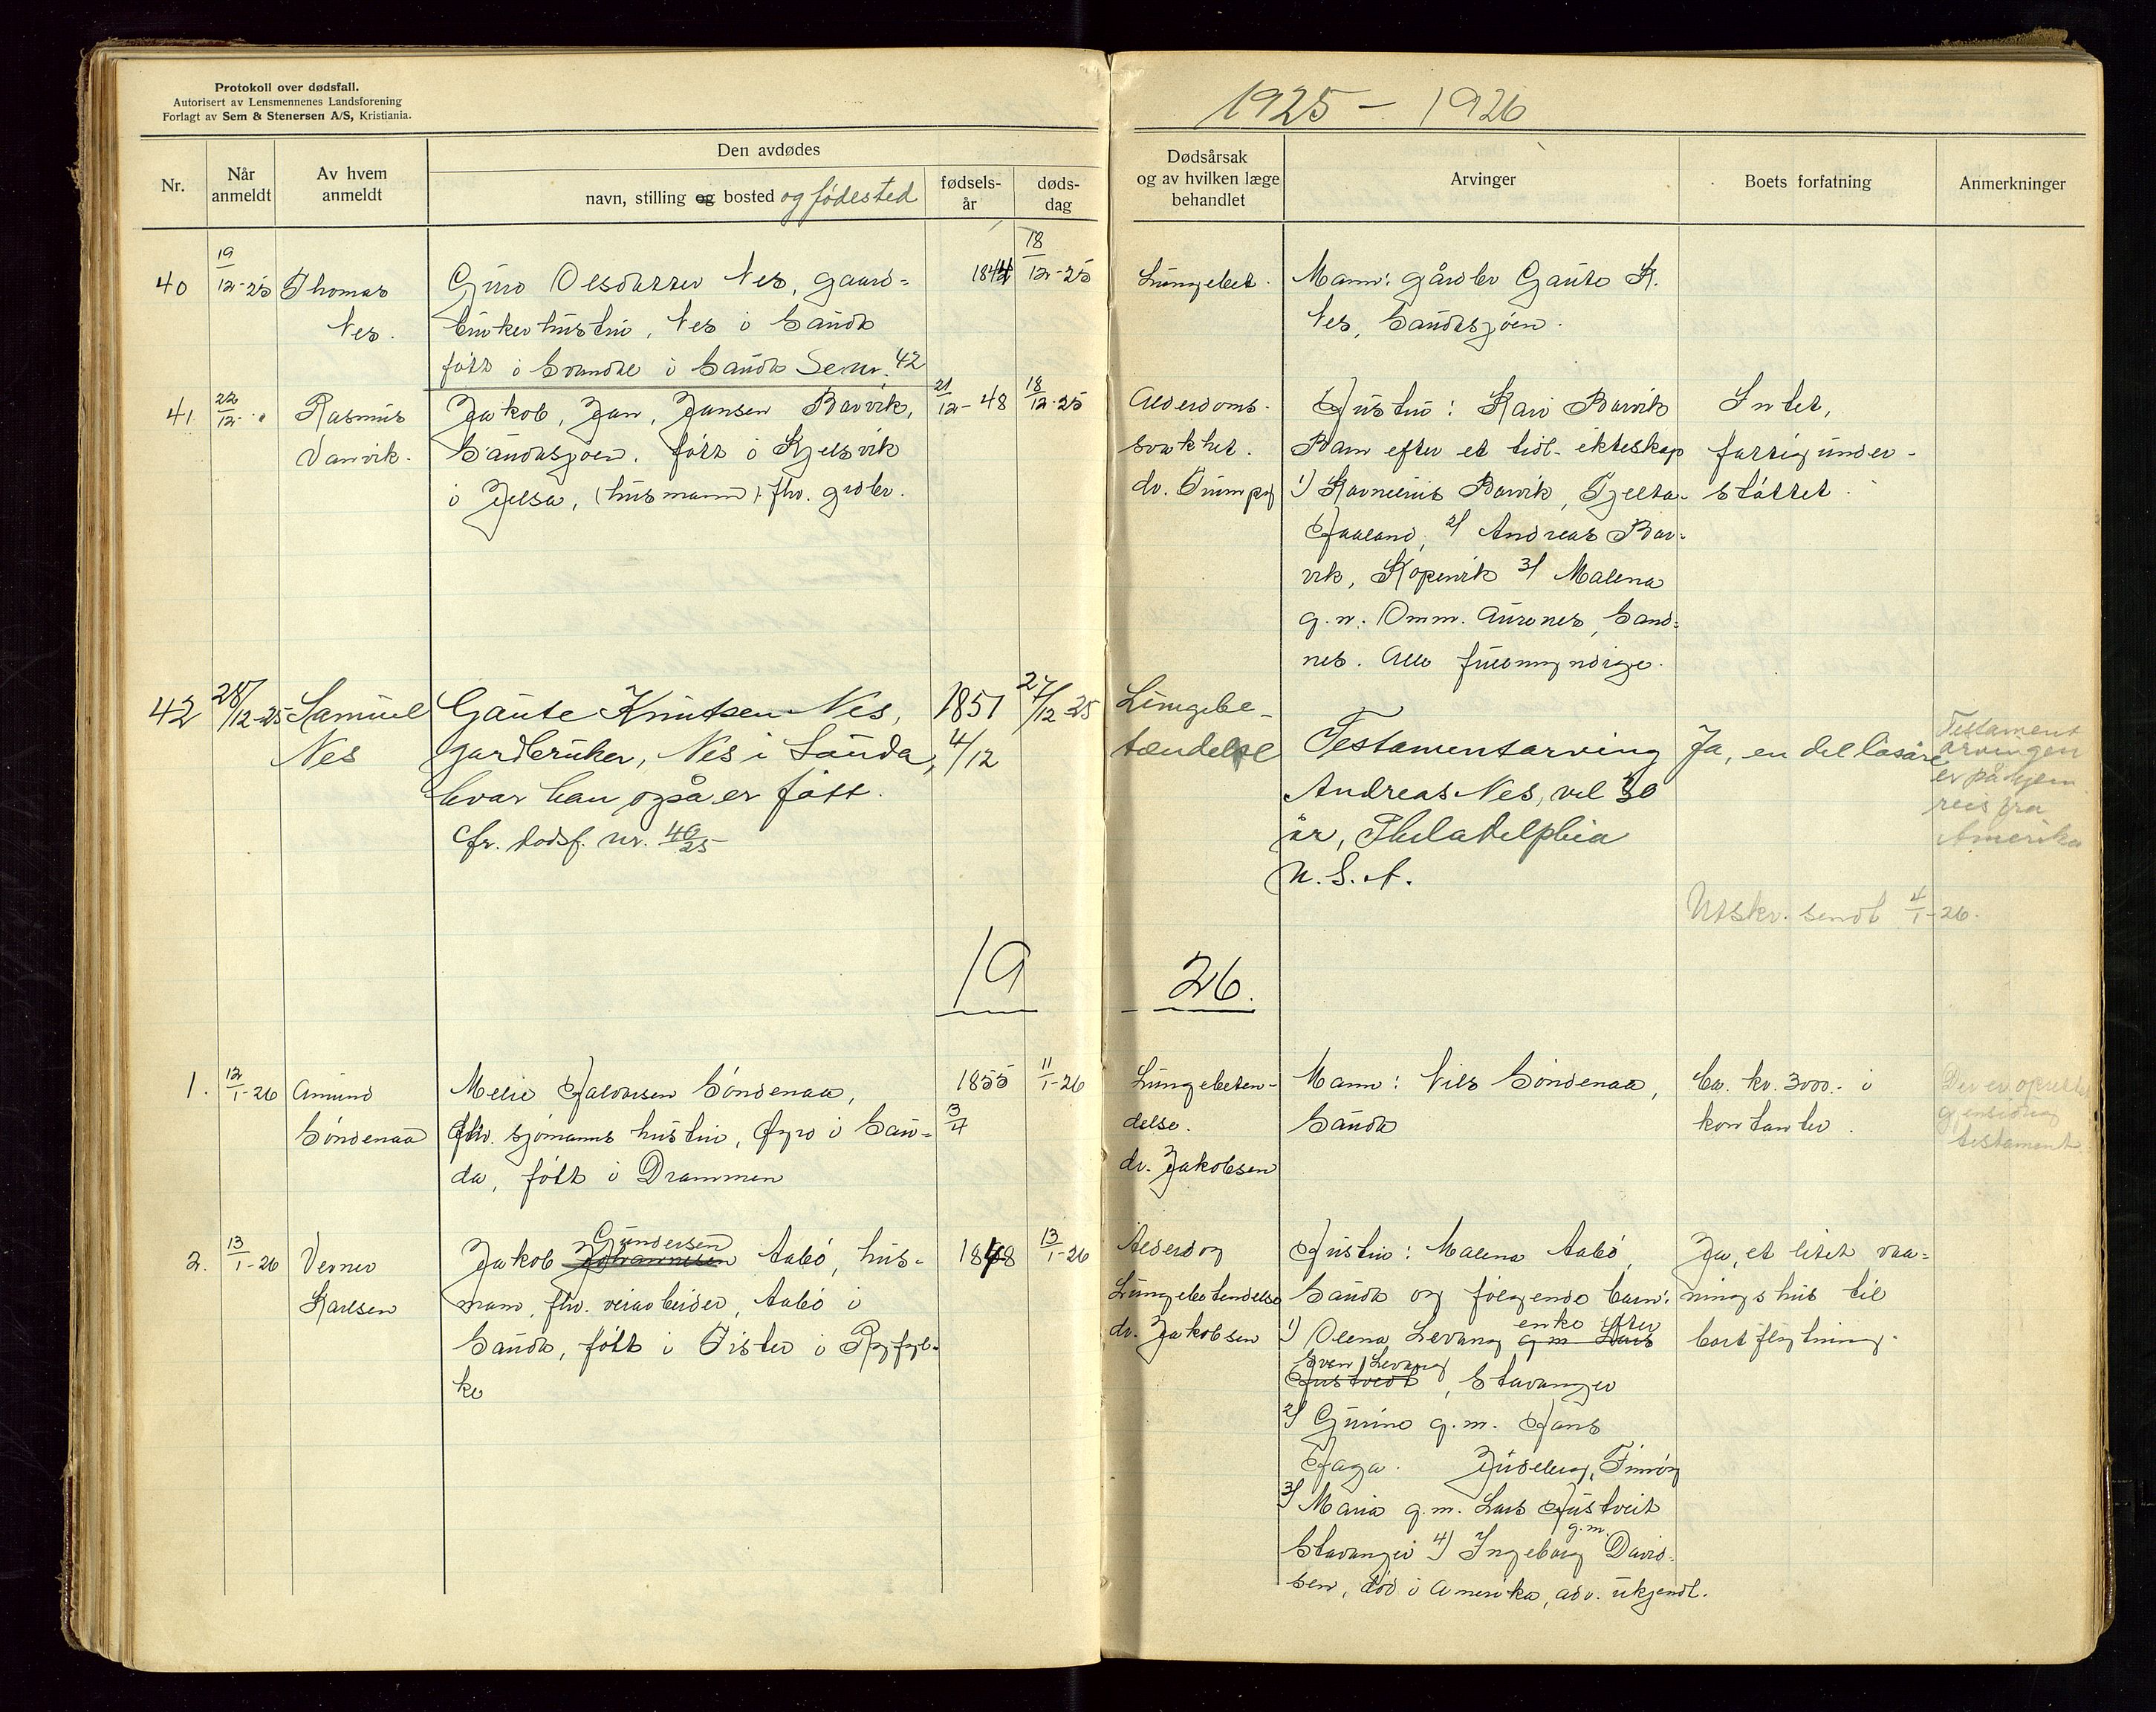 Protokoll over dødsfall.
Autorisert av Lensmennenes Landsforening
Forlagt av Sem & Stenersen A/S, Kristiania.
1925 - 1926
Nr.
Når anmeldt
Av hvem anmeldt
Den avdødes
navn, stilling og bosted og fødested
fødsels-år
døds-dag
Dødsårsak og av hvilken læge behandlet
Arvinger
Boets forfatning
Anmerkninger
40
19/12-25
Thomas
Nes.
Guro Olsdatter Nes, gaard=
bruker hustru, Nes i Sauda
født i i Sauda Se nr. 42
1844
18/12-25
Lungebet.
Mann: gårdbr Gaute K.
Nes, Saudasjøen.
41
22/12-"
Rasmus
Vanvik.
Jakob, Jan, Jansen Barvik,
Saudasjøen. født i Kjelsvik
i Jelsa, (husmann) fhv. grdbr.
21/12-48
18/12-25
Alderdoms-
svakhet.
dr. Trumpy
Hustru: Kari Barvik
Barn efter et tidl. ekteskap
1) Kornelius Barvik, Tjelta-
Haaland, 2) Andreas Bar=
vik, Kopervik 3) Malena
g.m. Omm. Aurenes, Sand=
nes. Alle fullmyndige.
Intet,
fattigunder-
støttet.
42
28/12-25
Samuel
Nes
Gaute Knutsen Nes,
gardbruker, Nes i Sauda,
hvor han også er født.
Cfr. dødsf. nr. 40/25
1851
4/12
27/12-25
Lungebe-
tændelse
Testamentarving
Andreas Nes, vel 30
år, Philadelphia
U.S.A.
Ja, en del løsøre
Testament
arvingen
er på hjem
reis fra
Amerika
Utskr. sendt 4/1-26.
19
26.
1.
12/1-26
Amund
Søndenaa
Melie Halvorsen Søndenaa,
fhv. sjømanns hustru, Øyro i Sau=
da, født i Drammen
1855
11/1-26
Lungebeten-
delse.
dr. Jakobsen
Mann: Nils Søndenaa,
Sauda
Ca. kr. 3000.- i
kontanter.
Der er oprettet
gjensidig
testament
2.
13/1-26
Verner
Karlsen
Gundersen
Jakob Johannesen Aabø, hus-
mann, fhv. veiarbeider, Aabø i
Sauda, født i Fister i Ryfyl-
ke
1848
13/1-26
Alderd og
Lungebetendelse
dr. Jakobsen
Hustru: Malena Aabø,
Sauda og følgende barn:
enke efter
1) Olena Levang g.m. Lars
Sven Levang
Hustvedt, Stavanger
2) Gurine g.m. Hans
Haga. Judeberg, Finnøy
3) Maria g.m. Lars Hustveit
g.m.
Stavanger 4) Ingeborg David-
sen, død i Amerika, adr. ukjendt.
Ja, et litet vaa=
ningshus til
bortflytning.